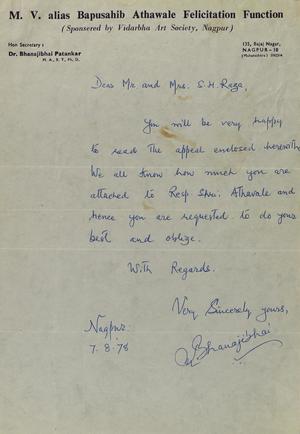 M. V. alias Bapusahib Athawale Felicitation Function
(Sponsered by Vidarbha Art Society, Nagpur)
Hon Secretary :
Dr. Bhanajibhai Patankar
M. A., B. T., Ph. D.
133, Bajaj Nagar,
NAGPUR-10
(Maharashtra) INDIA
Dear Mr. and Mrs. S. H. Raza,
You will be very happy
to read the appeal enclosed herewith
We all know how much you are
attached to Resp. Shri. Athavale and
hence you are requested to do your
best and oblige.
With Regards.
Very Sincerely yours,
Bhanajibhai
Nagpur
7. 8. 78